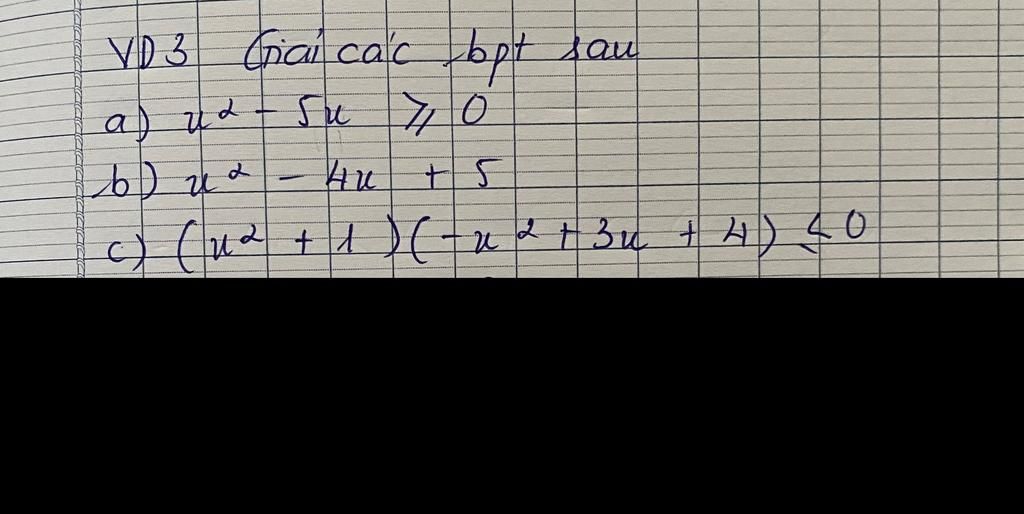 VD3 Giải các bpt sau
a) x² - 5x ⩾ 0
b) x² - 4x + 5
c) (x² + 1)(-x² + 3x + 4) ⩽ 0